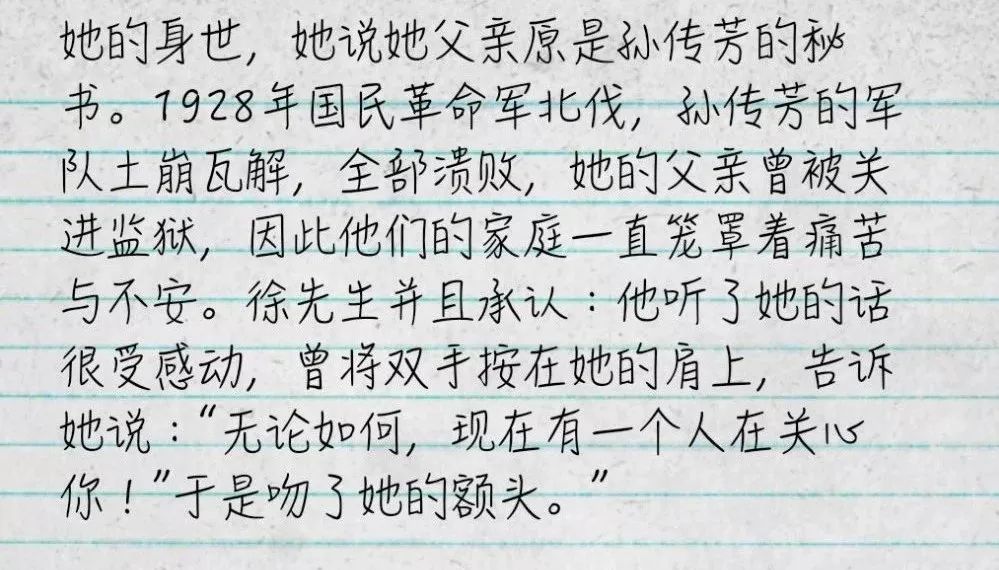 她的身世，她说她父亲原是孙传芳的秘
书。1928年国民革命军北伐，孙传芳的军
队土崩瓦解，全部溃败，她的父亲曾被关
进监狱，因此他们的家庭一直笼罩着痛苦
与不安。徐先生并且承认：他听了她的话
很受感动，曾将双手按在她的肩上，告诉
她说：“无论如何，现在有一个人在关心
你！”于是吻了她的额头。”